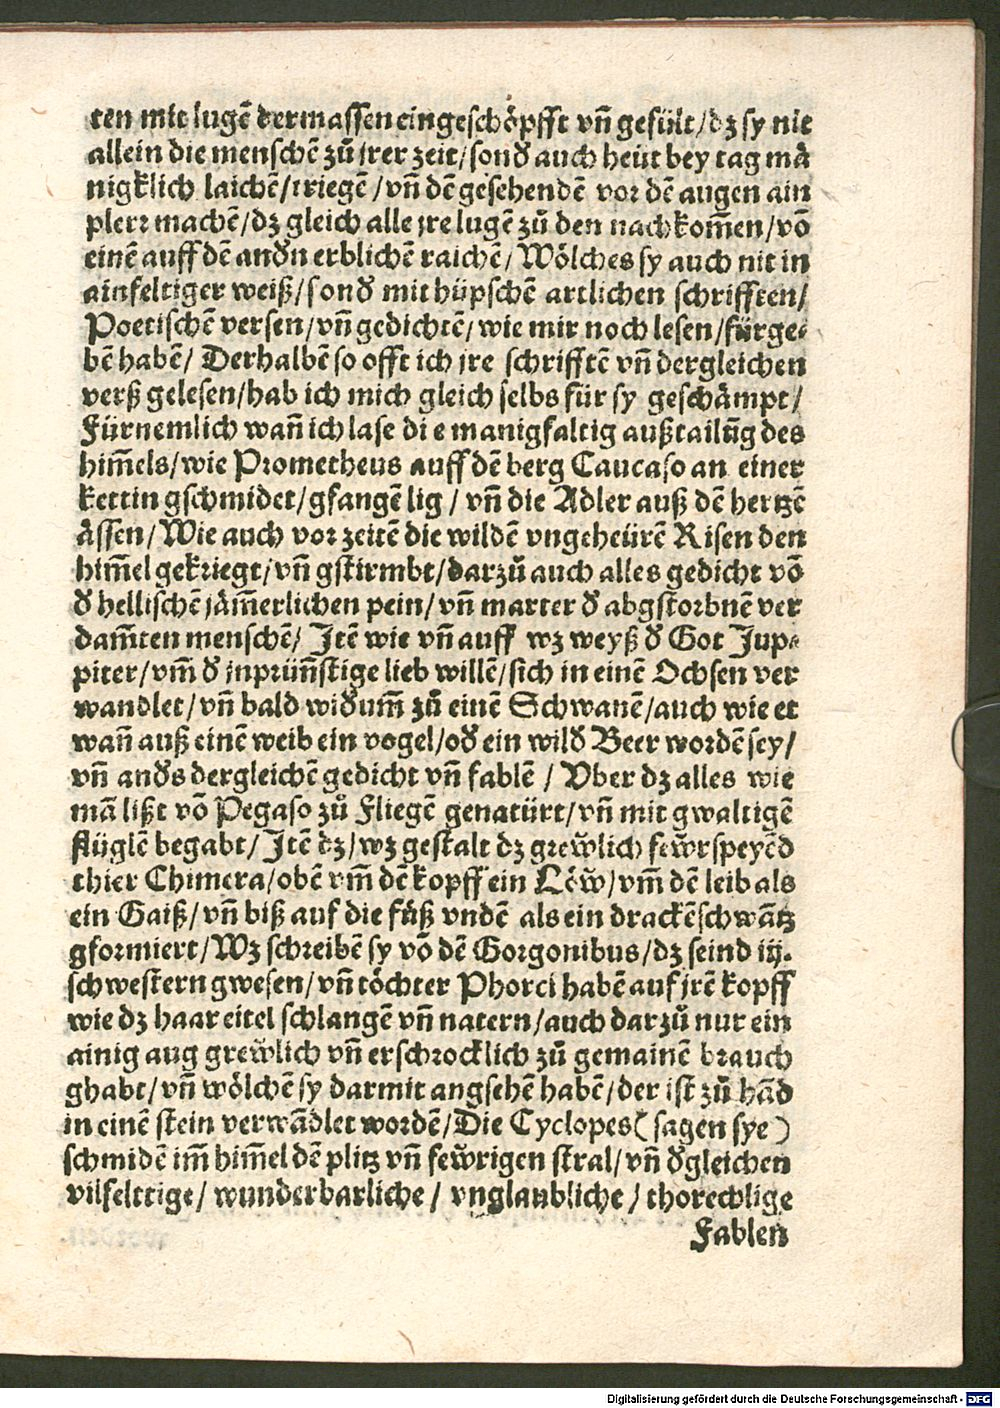 ten mit lugē dermassen eingeschöpfft vñ gefült/dz sy nit
allein die menschē zů jrer zeit/sonđ auch heüt bey tag mā
nigklich laichē/triegē/vñ dē gesehendē vor dē augen ain
plerr machē/dz gleich alle jre lugē zů den nachkom̄en/võ
einē auff dē anđn erblichē raichē/Wölches sy auch nit in
ainfeltiger weiß/sonđ mit hüpschē artlichen schrifften/
Poetischē versen/vñ gedichtē/wie mir noch lesen/fürge⸗
bē habē/ Derhalbē so offt ich jre schrifftē vñ dergleichen
verß gelesen/hab ich mich gleich selbs für sy geschämpt/
Fürnemlich wañ ich lase di e manigfaltig außtailũg des
him̄els/wie Prometheus auff dē berg Caucaso an einer
kettin gschmidet/gfangē lig/ vñ die Adler auß dē hertzē
ässen/Wie auch vor zeitē die wildē vngeheürē Risen den
him̄el gekriegt/vñ gstirmbt/darzů auch alles gedicht võ
đ hellischē jäm̄erlichen pein/vñ marter đ abgstorbnē ver
dam̄ten menschē/ Jtē wie vñ auff wz weyß đ Got Jup⸗
piter/vm̄ đ jnprüñstige lieb willē/sich in einē Ochsen ver
wandlet/vñ bald wiđum̄ zů einē Schwanē/auch wie et
wañ auß einē weib ein vogel/ođ ein wilđ Beer wordē sey/
vñ anđs dergleichē gedicht vñ fablē / Vber dz alles wie
mā lißt võ Pegaso zů Fliegē genatürt/vñ mit gwaltigē
flüglē begabt/Jtē dz/wz gestalt dz grewlich fewrspeyēd
thier Chimera/obē vm̄ dē kopff ein Löw/vm̄ dē leib als
ein Gaiß/vñ biß auf die füß vndē als ein drackēschwātz
gformiert/Wz schreibē sy võ dē Gorgonibus/dz seind iij.
schwestern gwesen/vñ töchter Phorci habē auf jrē kopff
wie dz haar eitel schlangē vñ natern/auch darzů nur ein
ainig aug grewlich vñ erschrocklich zů gemainē brauch
ghabt/vñ wölchē sy darmit angsehē habē/der ist zů hād
in einē stein verwādlet wordē/Die Cyclopes(sagen sye)
schmidē im̄ him̄el dē plitz vñ fewrigen stral/vñ đgleichen
vilfelttige/ wunderbarliche/ vnglaubliche/ thorechlige
Fablen
Digitalisierung gefördert durch die Deutsche Forschungsgemeinschaft - DFG